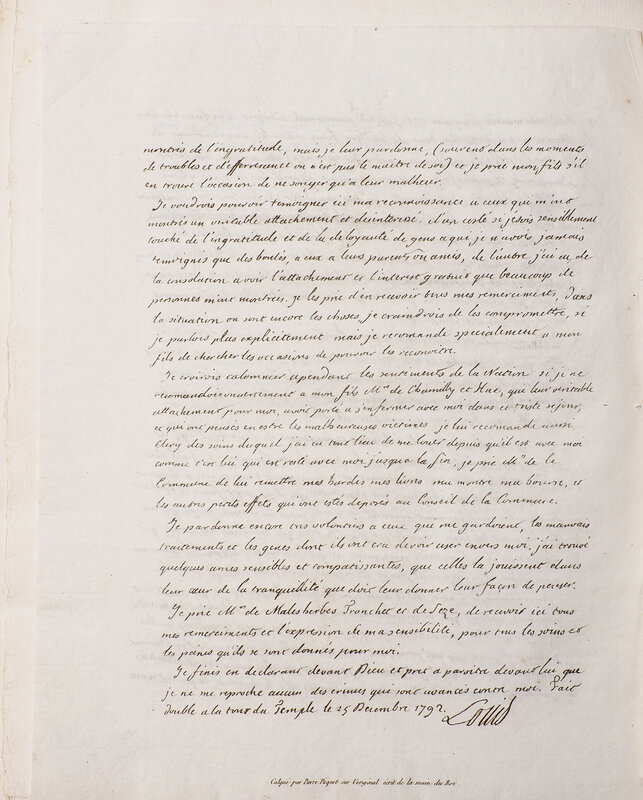 montrés de l'ingratitude, mais je leur pardonne, (souvent dans les moments
de troubles et d'effervescence on n'est pas le maitre de soi) et je prie mon fils s'il
en trouve l'occasion de ne songer qu'a leur malheur.
Je voudrois pouvoir temoigner ici ma reconnoissance a ceux qui m'ont
montrés un veritable attachement et desinteressé. d'un costé si j'étois sensiblement
touché de l'ingratitude et de la deloyauté de gens a qui je n'avois jamais
temoignés que des bontés, a eux a leurs parents ou amis, de l'autre j'ai eu de
la consolation a voir l'attachement et l'interest gratuit que beaucoup de
personnes m'ont montrées. je les prie d'en recevoir tous mes remerciments, dans
la situation ou sont encore les choses, je craindrois de les compromettre, si
je parlois plus explicitement mais je recomande specialement a mon
fils de chercher les occasions de pouvoir les reconoitre.
Je croirois calomnier cependant les sentiments de la Nation si je ne
recomandois ouvertement a mon fils Mrs de Chamilly et Hue, que leur veritable
attachement pour moi, avoit porté a s'enfermer avec moi dans ce triste sejour,
et qui ont pensés en estre les malheureuses victimes je lui recomande aussi
Clery des soins duquel j'ai eu tout lieu de me louer depuis qu'il est avec moi
comme c'est lui qui est resté avec moi jusqu'a la fin, je prie Mrs de la
Commune de lui remettre mes hardes mes livres ma montre ma bourse, et
les autres petits effets qui ont estés deposés au Conseil de la Commune.
Je pardonne encore tres volontiers a ceux qui me gardoient, les mauvais
traitements et les genes dont ils ont cru devoir user envers moi. j'ai trouvé
quelques ames sensibles et compatissantes, que celles la jouissent dans
leur cœur de la tranquilité que doit leur donner leur façon de penser.
Je prie Mrs de Malesherbes Tronchet et de Seze, de recevoir ici tous
mes remerciments et l'expression de ma sensibilité, pour tous les soins et
les peines qu'ils se sont donnés pour moi.
Je finis en declarant devant Dieu et pret a paroitre devant lui que
je ne me reproche aucun des crimes qui sont avancés contre moi. Fait
double a la tour du Temple le 25 Decembre 1792. Louis
Calqué par Pierre Picquet sur l'original écrit de la main du Roi